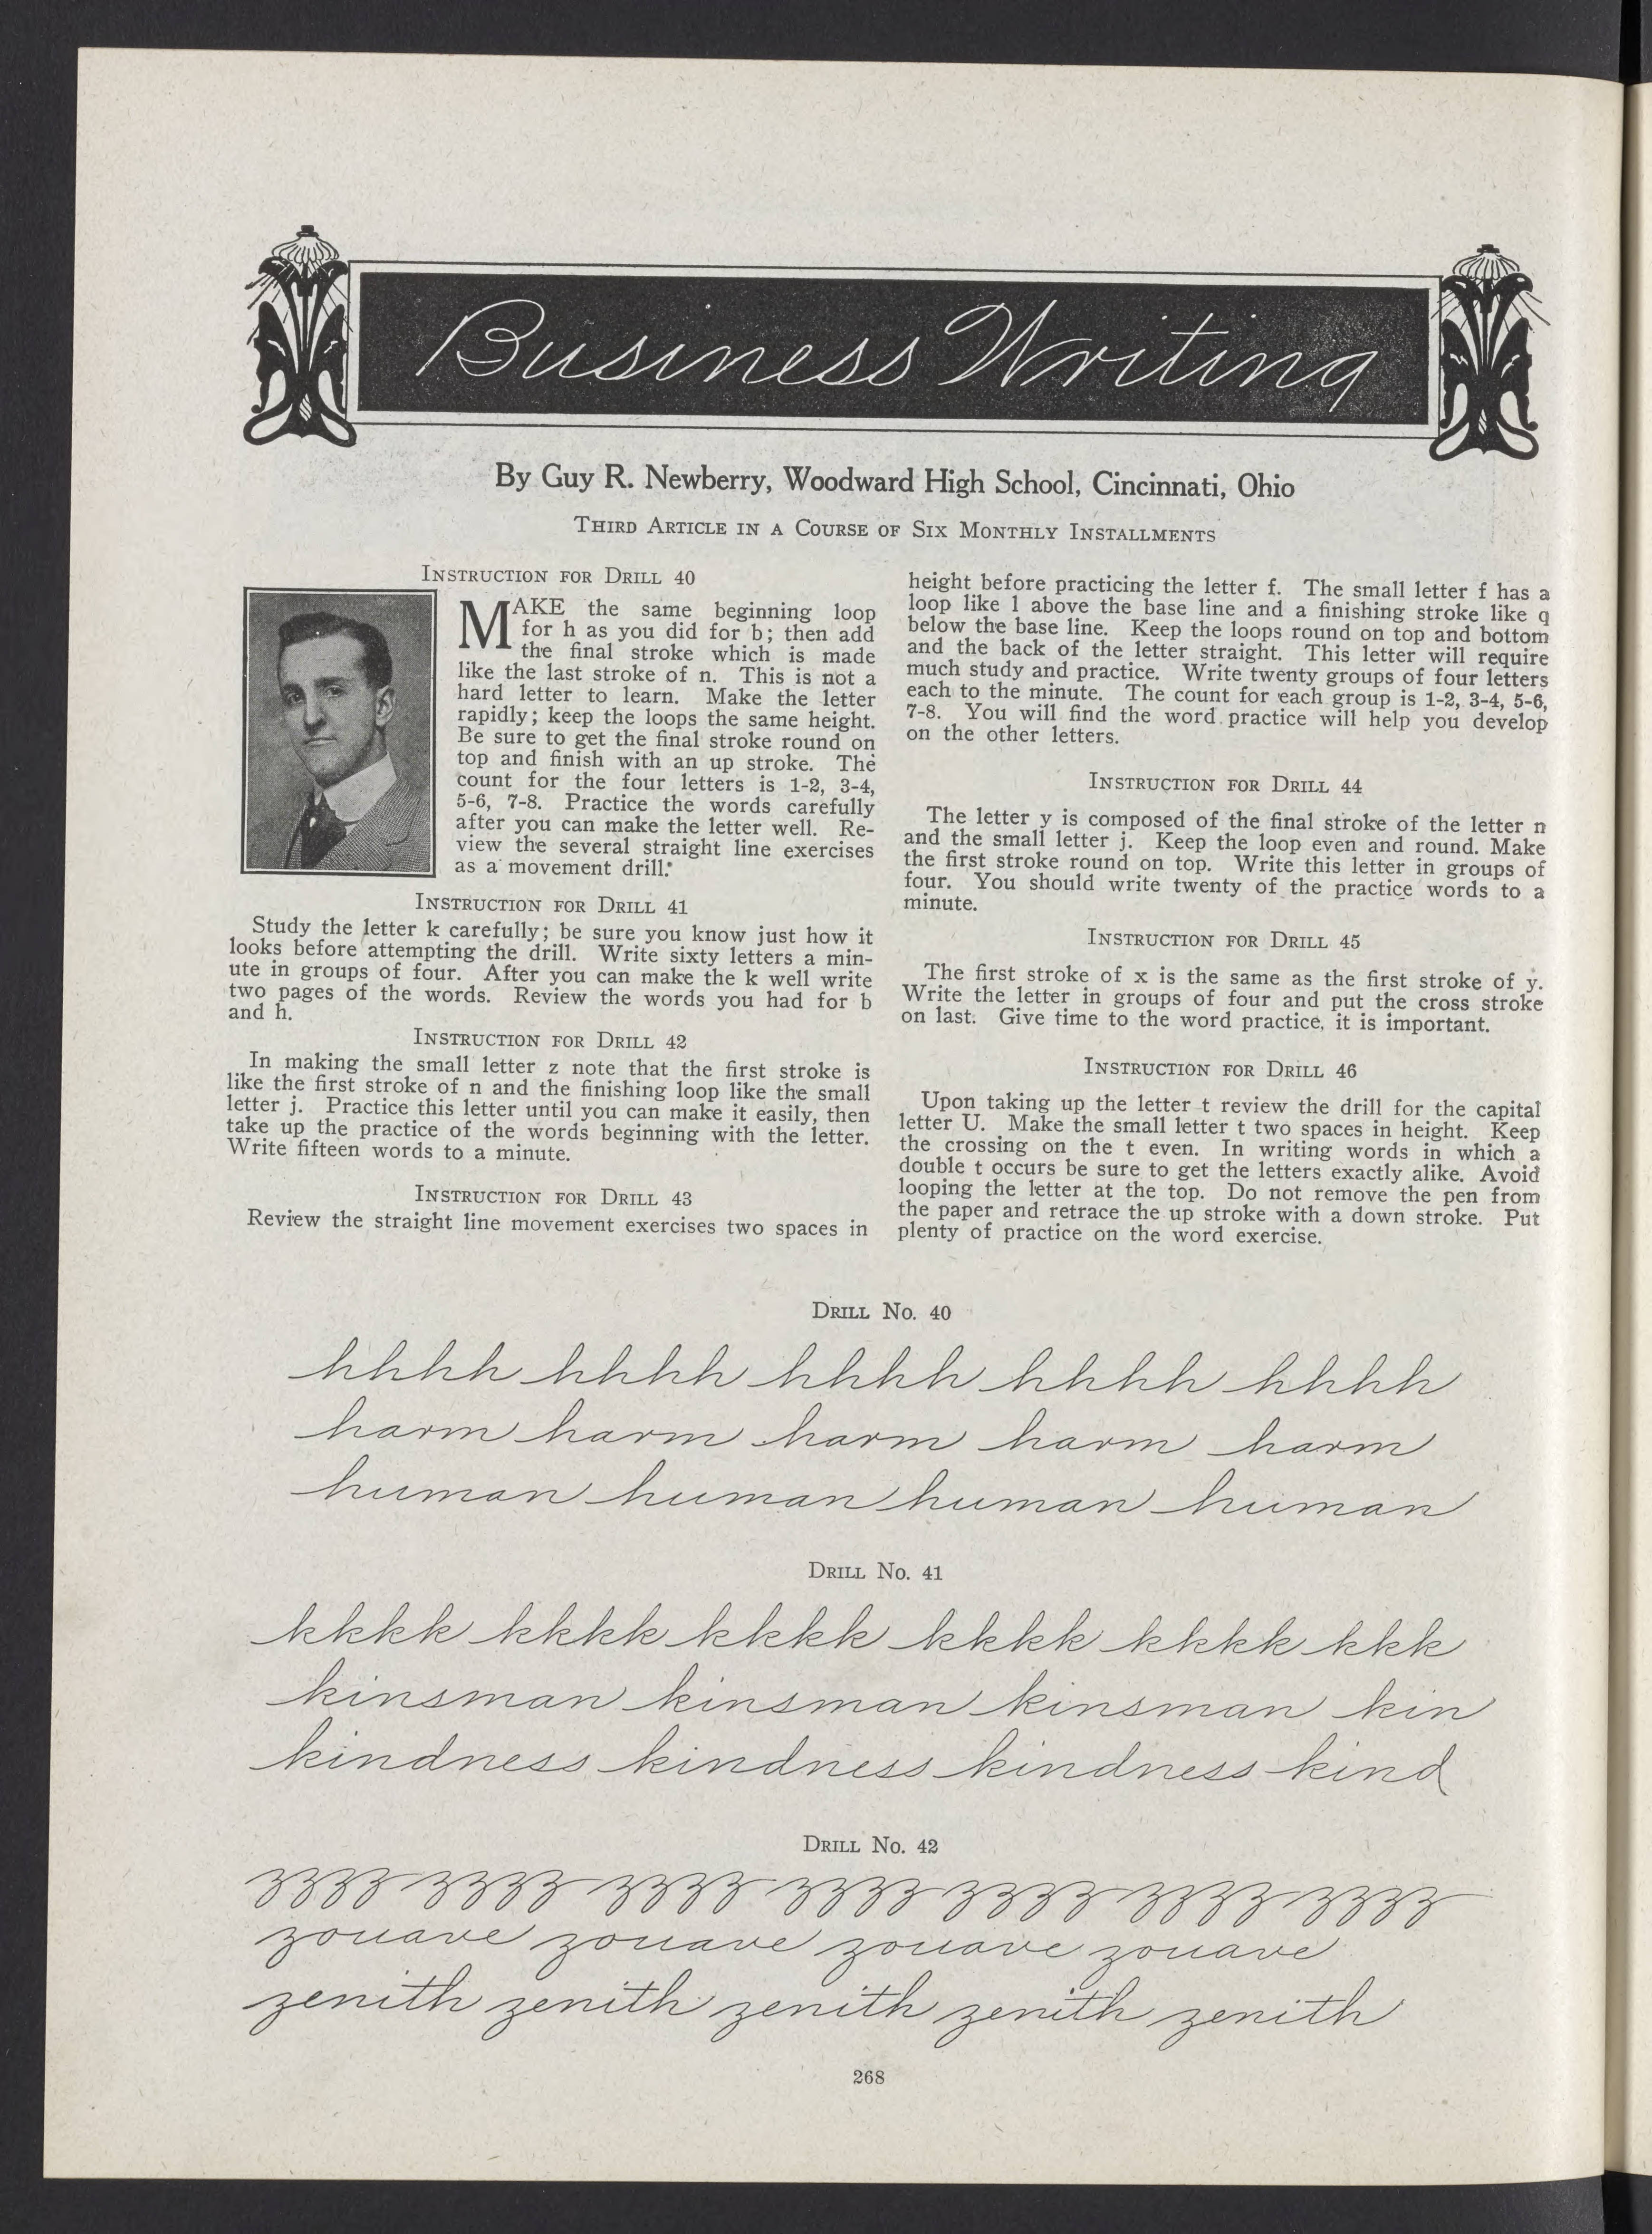 Business Writing
By Guy R. Newberry, Woodward High School, Cincinnati, Ohio
Third Article in a Course of Six Monthly Installments
Instruction for Drill 40
MAKE the same beginning loop
for h as you did for b; then add
the final stroke which is made
like the last stroke of n. This is not a
hard letter to learn. Make the letter
rapidly; keep the loops the same height.
Be sure to get the final stroke round on
top and finish with an up stroke. The
count for the four letters is 1-2, 3-4,
5-6, 7-8. Practice the words carefully
after you can make the letter well. Re-
view the several straight line exercises
as a movement drill.
Instruction for Drill 41
Study the letter k carefully; be sure you know just how it
looks before attempting the drill. Write sixty letters a min-
ute in groups of four. After you can make the k well write
two pages of the words. Review the words you had for b
and h.
Instruction for Drill 42
In making the small letter z note that the first stroke is
like the first stroke of n and the finishing loop like the small
letter j. Practice this letter until you can make it easily, then
take up the practice of the words beginning with the letter.
Write fifteen words to a minute.
Instruction for Drill 43
Review the straight line movement exercises two spaces in
height before practicing the letter f. The small letter f has a
loop like l above the base line and a finishing stroke like q
below the base line. Keep the loops round on top and bottom
and the back of the letter straight. This letter will require
much study and practice. Write twenty groups of four letters
each to the minute. The count for each group is 1-2, 3-4, 5-6,
7-8. You will find the word practice will help you develop
on the other letters.
Instruction for Drill 44
The letter y is composed of the final stroke of the letter n
and the small letter j. Keep the loop even and round. Make
the first stroke round on top. Write this letter in groups of
four. You should write twenty of the practice words to a
minute.
Instruction for Drill 45
The first stroke of x is the same as the first stroke of y.
Write the letter in groups of four and put the cross stroke
on last. Give time to the word practice, it is important.
Instruction for Drill 46
Upon taking up the letter t review the drill for the capital
letter U. Make the small letter t two spaces in height. Keep
the crossing on the t even. In writing words in which a
double t occurs be sure to get the letters exactly alike. Avoid
looping the letter at the top. Do not remove the pen from
the paper and retrace the up stroke with a down stroke. Put
plenty of practice on the word exercise.
Drill No. 40
hhhh hhhh hhhh hhhh hhhh
harm harm harm harm harm
human human human human
Drill No. 41
kkkk kkkk kkkk kkkk kkkk kkk
kinsman kinsman kinsman kin
kindness kindness kindness kind
Drill No. 42
zzzz zzzz zzzz zzzz zzzz zzzz zzzz
zouave zouave zouave zouave
zenith zenith zenith zenith zenith
268